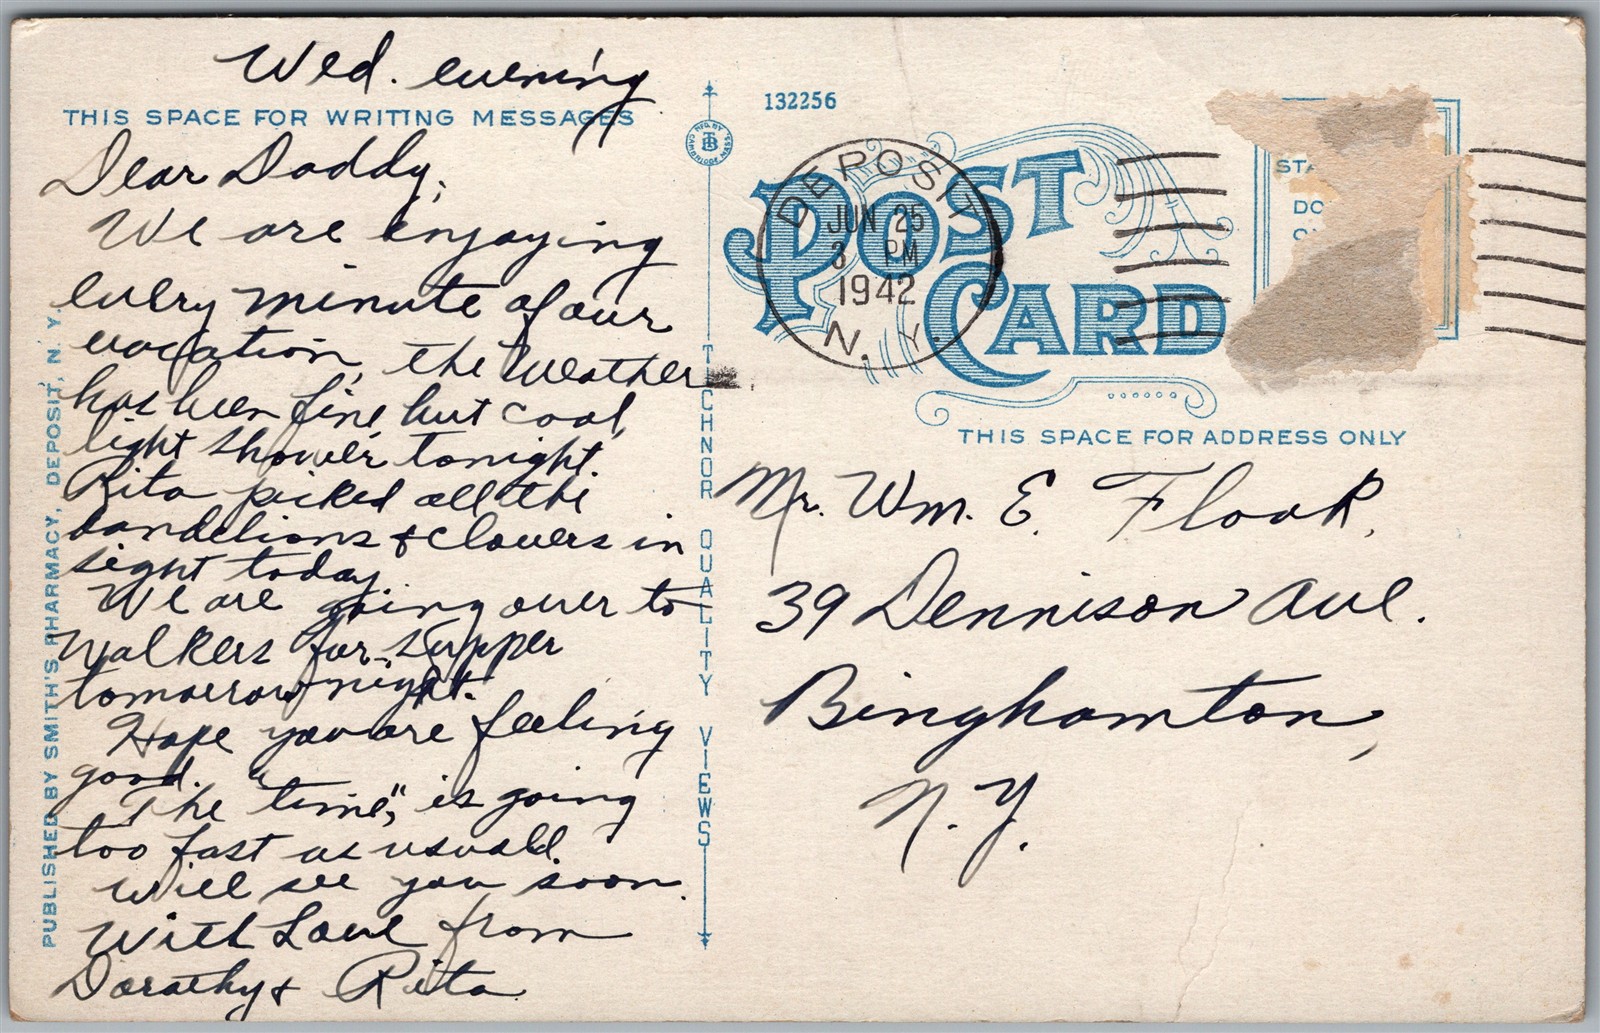 Wed. evening
THIS SPACE FOR WRITING MESSAGES
Dear Daddy,
We are enjoying
every minute of our
vacation, the weather
has been fine but cool,
light shower tonight.
Rita picked all the
dandelions & clovers in
sight today.
We are going over to
Walkers for supper
tomorrow night.
Hope you are feeling
good.
The "time", is going
too fast as usuall.
Will see you soon.
With Love from
Dorothy & Rita
PUBLISHED BY SMITH'S PHARMACY, DEPOSIT, N. Y.
MFG. BY
TB
CAMBRIDGE MASS.
TECHNOR QUALITY VIEWS
132256
POST CARD
DEPOSIT
JUN 25
3 PM
1942
N. Y.
STA
DO
THIS SPACE FOR ADDRESS ONLY
Mr. Wm. E. Flook,
39 Dennison Ave.
Binghamton,
N. Y.